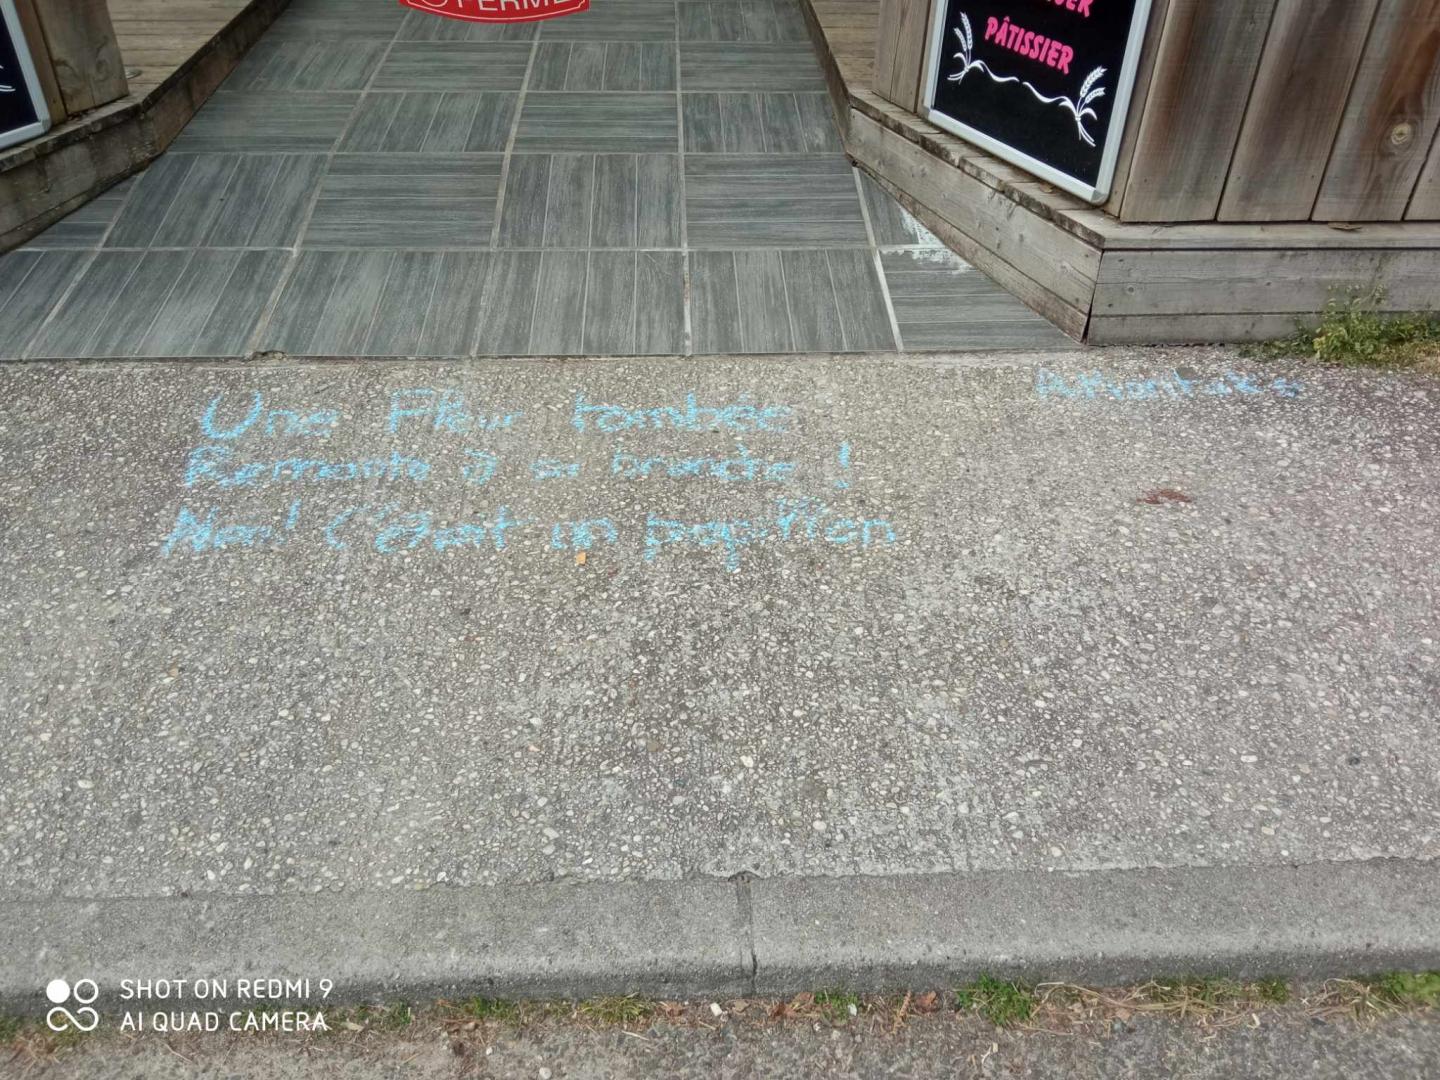 FERMÉ
PÂTISSIER
Une Fleur tombée
Remonte à sa branche !
Non! C'était un papillon
SHOT ON REDMI 9
AI QUAD CAMERA